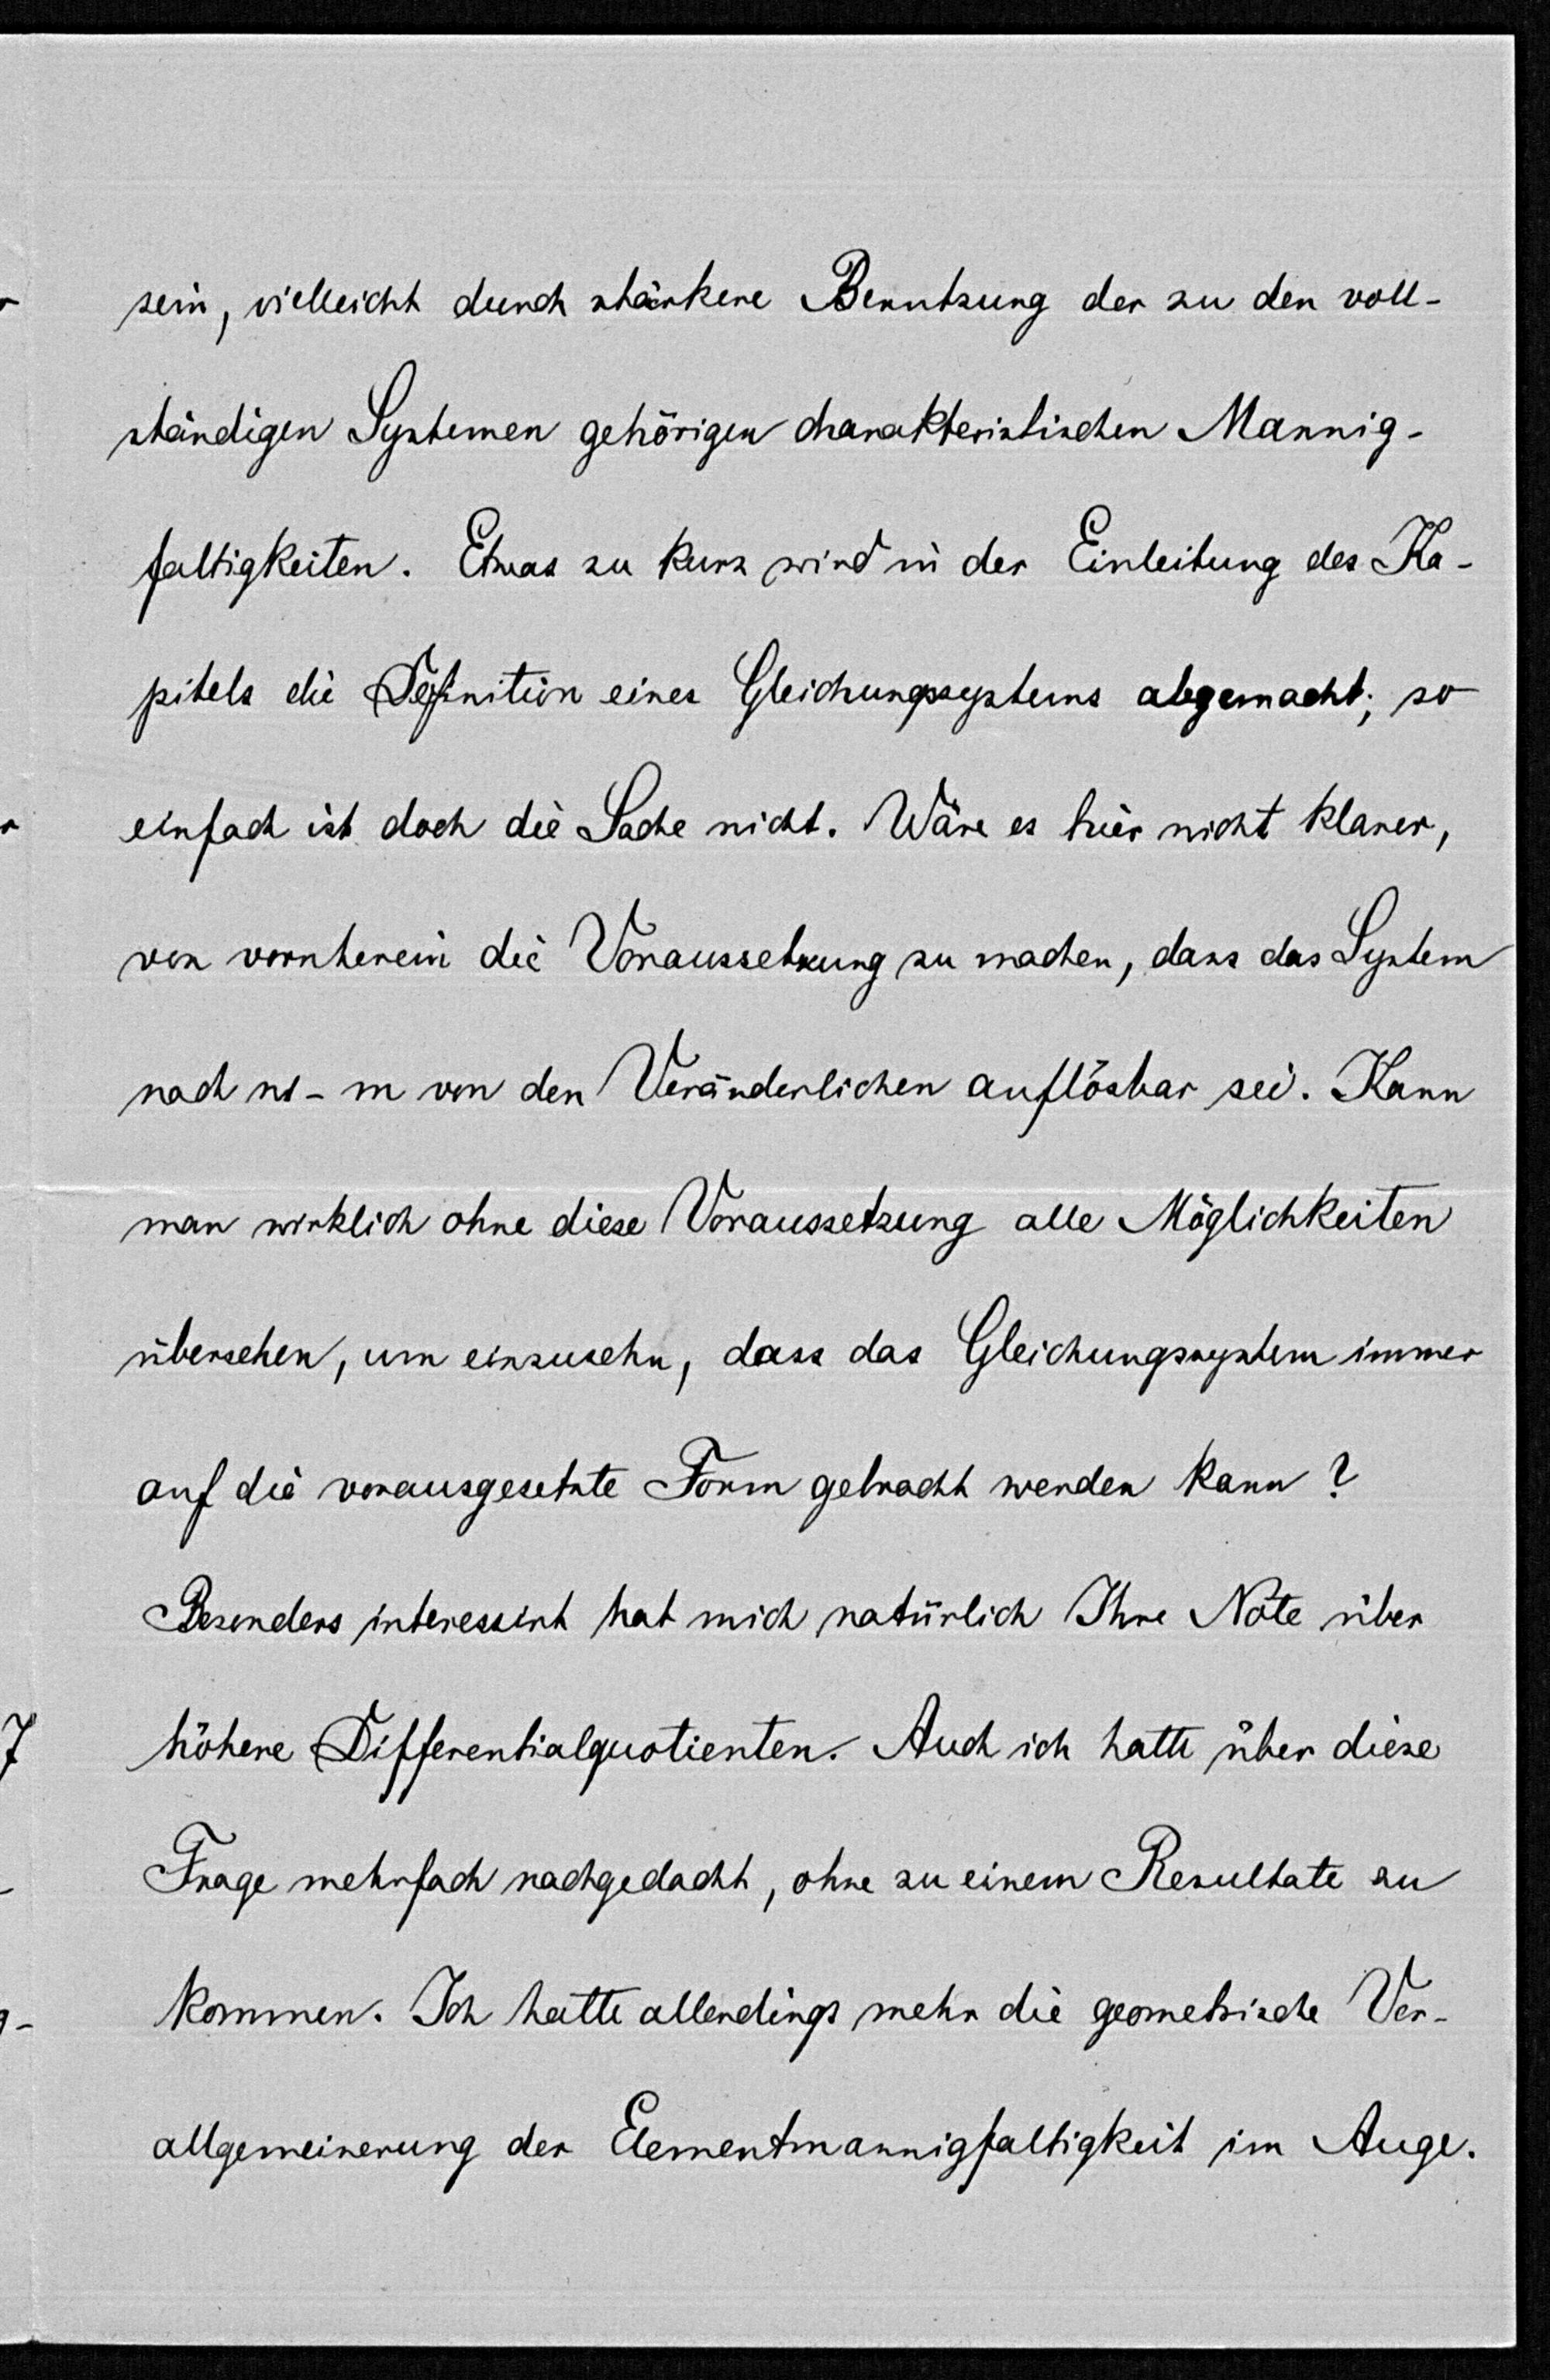 sein, vielleicht durch stärkere Benutzung der zu den voll-
ständigen Systemen gehörigen charakteristischen Mannig-
faltigkeiten. Etwas zu kurz wird in der Einleitung des Ka-
pitels die Definition eines Gleichungssystems abgemacht; so
einfach ist doch die Sache nicht. Wäre es hier nicht klarer,
von vornherein die Voraussetzung zu machen, dass das System
nach ns - m von den Veränderlichen auflösbar sei. Kann
man wirklich ohne diese Voraussetzung alle Möglichkeiten
übersehen, um einzusehn, dass das Gleichungssystem immer
auf die vorausgesetzte Form gebracht werden kann?
Besonders interessirt hat mich natürlich Ihre Note über
höhere Differentialquotienten. Auch ich hatte über diese
Frage mehrfach nachgedacht, ohne zu einem Resultate zu
kommen. Ich hatte allerdings mehr die geometrische Ver-
allgemeinerung der Elementmannigfaltigkeit im Auge.